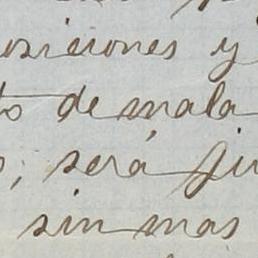 osiciones y
to de mala
será
sin mas